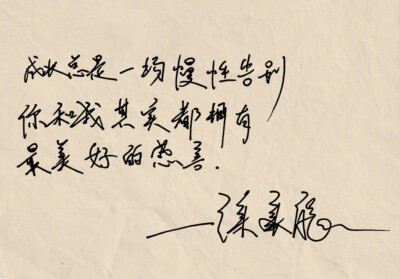 成长总是一场慢性告别
你和我其实都拥有
最美好的慈善.